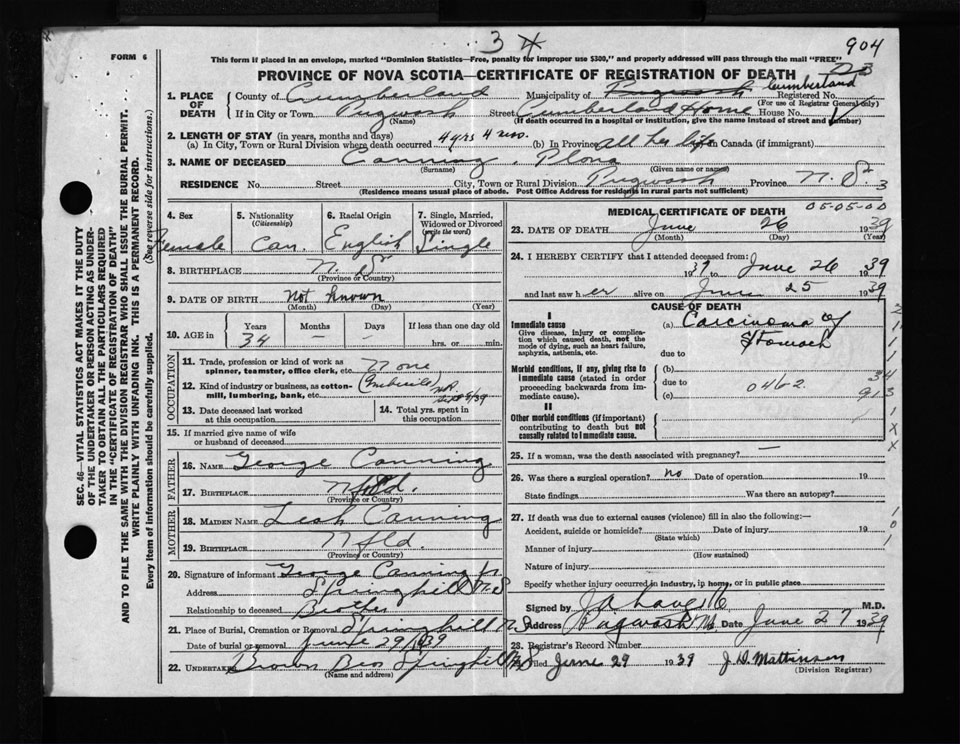 34
904
FORM 6
This form if placed in an envelope, marked "Dominion Statistics—Free, penalty for improper use $300," and properly addressed will pass through the mail "FREE"
PROVINCE OF NOVA SCOTIA—CERTIFICATE OF REGISTRATION OF DEATH
1. PLACE OF DEATH
County of Cumberland Municipality of Pugwash Cumberland Registered No.
(For use of Registrar General only)
If in City or Town Pugwash Street Cumberland Home House No.
(Name) (If death occurred in a hospital or institution, give the name instead of street and number)
2. LENGTH OF STAY (in years, months and days)
(a) In City, Town or Rural Division where death occurred 4 yrs 4 mos. (b) In Province All her life In Canada (if immigrant)
3. NAME OF DECEASED Canning, Plona
(Surname) (Given name or names)
RESIDENCE No. Street City, Town or Rural Division Pugwash Province N.S.
(Residence means usual place of abode. Post Office Address for residents in rural parts not sufficient)
4. Sex Female
5. Nationality (Citizenship) Can.
6. Racial Origin English
7. Single, Married, Widowed or Divorced (write the word) Single
8. BIRTHPLACE N.S.
(Province or Country)
9. DATE OF BIRTH Not known
(Month) (Day) (Year)
10. AGE in Years Months Days If less than one day old
34 – – hrs. or min.
OCCUPATION
11. Trade, profession or kind of work as spinner, teamster, office clerk, etc. None
12. Kind of industry or business, as cotton-mill, lumbering, bank, etc. (Imbecile)
13. Date deceased last worked at this occupation
14. Total yrs. spent in this occupation
15. If married give name of wife or husband of deceased
FATHER
16. NAME George Canning
17. BIRTHPLACE Nfld.
(Province or Country)
MOTHER
18. MAIDEN NAME Leah Canning
19. BIRTHPLACE Nfld.
(Province or Country)
20. Signature of informant George Canning Jr
Address Springhill N.S
Relationship to deceased Brother
21. Place of Burial, Cremation or Removal Springhill N.S
Date of burial or removal June 29/1939
22. UNDERTAKER Brown Bros Springhill N.S
(Name and address)
MEDICAL CERTIFICATE OF DEATH
05-05-00
23. DATE OF DEATH June 26 1939
(Month) (Day) (Year)
24. I HEREBY CERTIFY that I attended deceased from:
1937 to June 26 1939
and last saw her alive on June 25 1939
CAUSE OF DEATH
I
Immediate cause
Give disease, injury or complication which caused death, not the mode of dying, such as heart failure, asphyxia, asthenia, etc.
(a) Carcinoma of Stomach
due to
Morbid conditions, if any, giving rise to immediate cause (stated in order proceeding backwards from immediate cause)
(b)
due to 046-2
(c)
II
Other morbid conditions (if important) contributing to death but not causally related to immediate cause.
25. If a woman, was the death associated with pregnancy? —
26. Was there a surgical operation? no Date of operation 19
State findings Was there an autopsy?
27. If death was due to external causes (violence) fill in also the following:—
Accident, suicide or homicide? Date of injury 19
(State which)
Manner of injury
(How sustained)
Nature of injury
Specify whether injury occurred in industry, in home, or in public place
Signed by M.D.
Address Pugwash N.S. Date June 27 1939
28. Registrar's Record Number
Filed June 29 1939 J. D. Mattinson
(Division Registrar)
SEC. 46—VITAL STATISTICS ACT MAKES IT THE DUTY
OF THE UNDERTAKER OR PERSON ACTING AS UNDERTAKER TO OBTAIN ALL THE PARTICULARS REQUIRED
IN THE "CERTIFICATE OF REGISTRATION OF DEATH"
AND TO FILE THE SAME WITH THE DIVISION REGISTRAR WHO SHALL ISSUE THE BURIAL PERMIT.
WRITE PLAINLY WITH UNFADING INK. THIS IS A PERMANENT RECORD.
Every item of information should be carefully supplied. (See reverse side for instructions.)